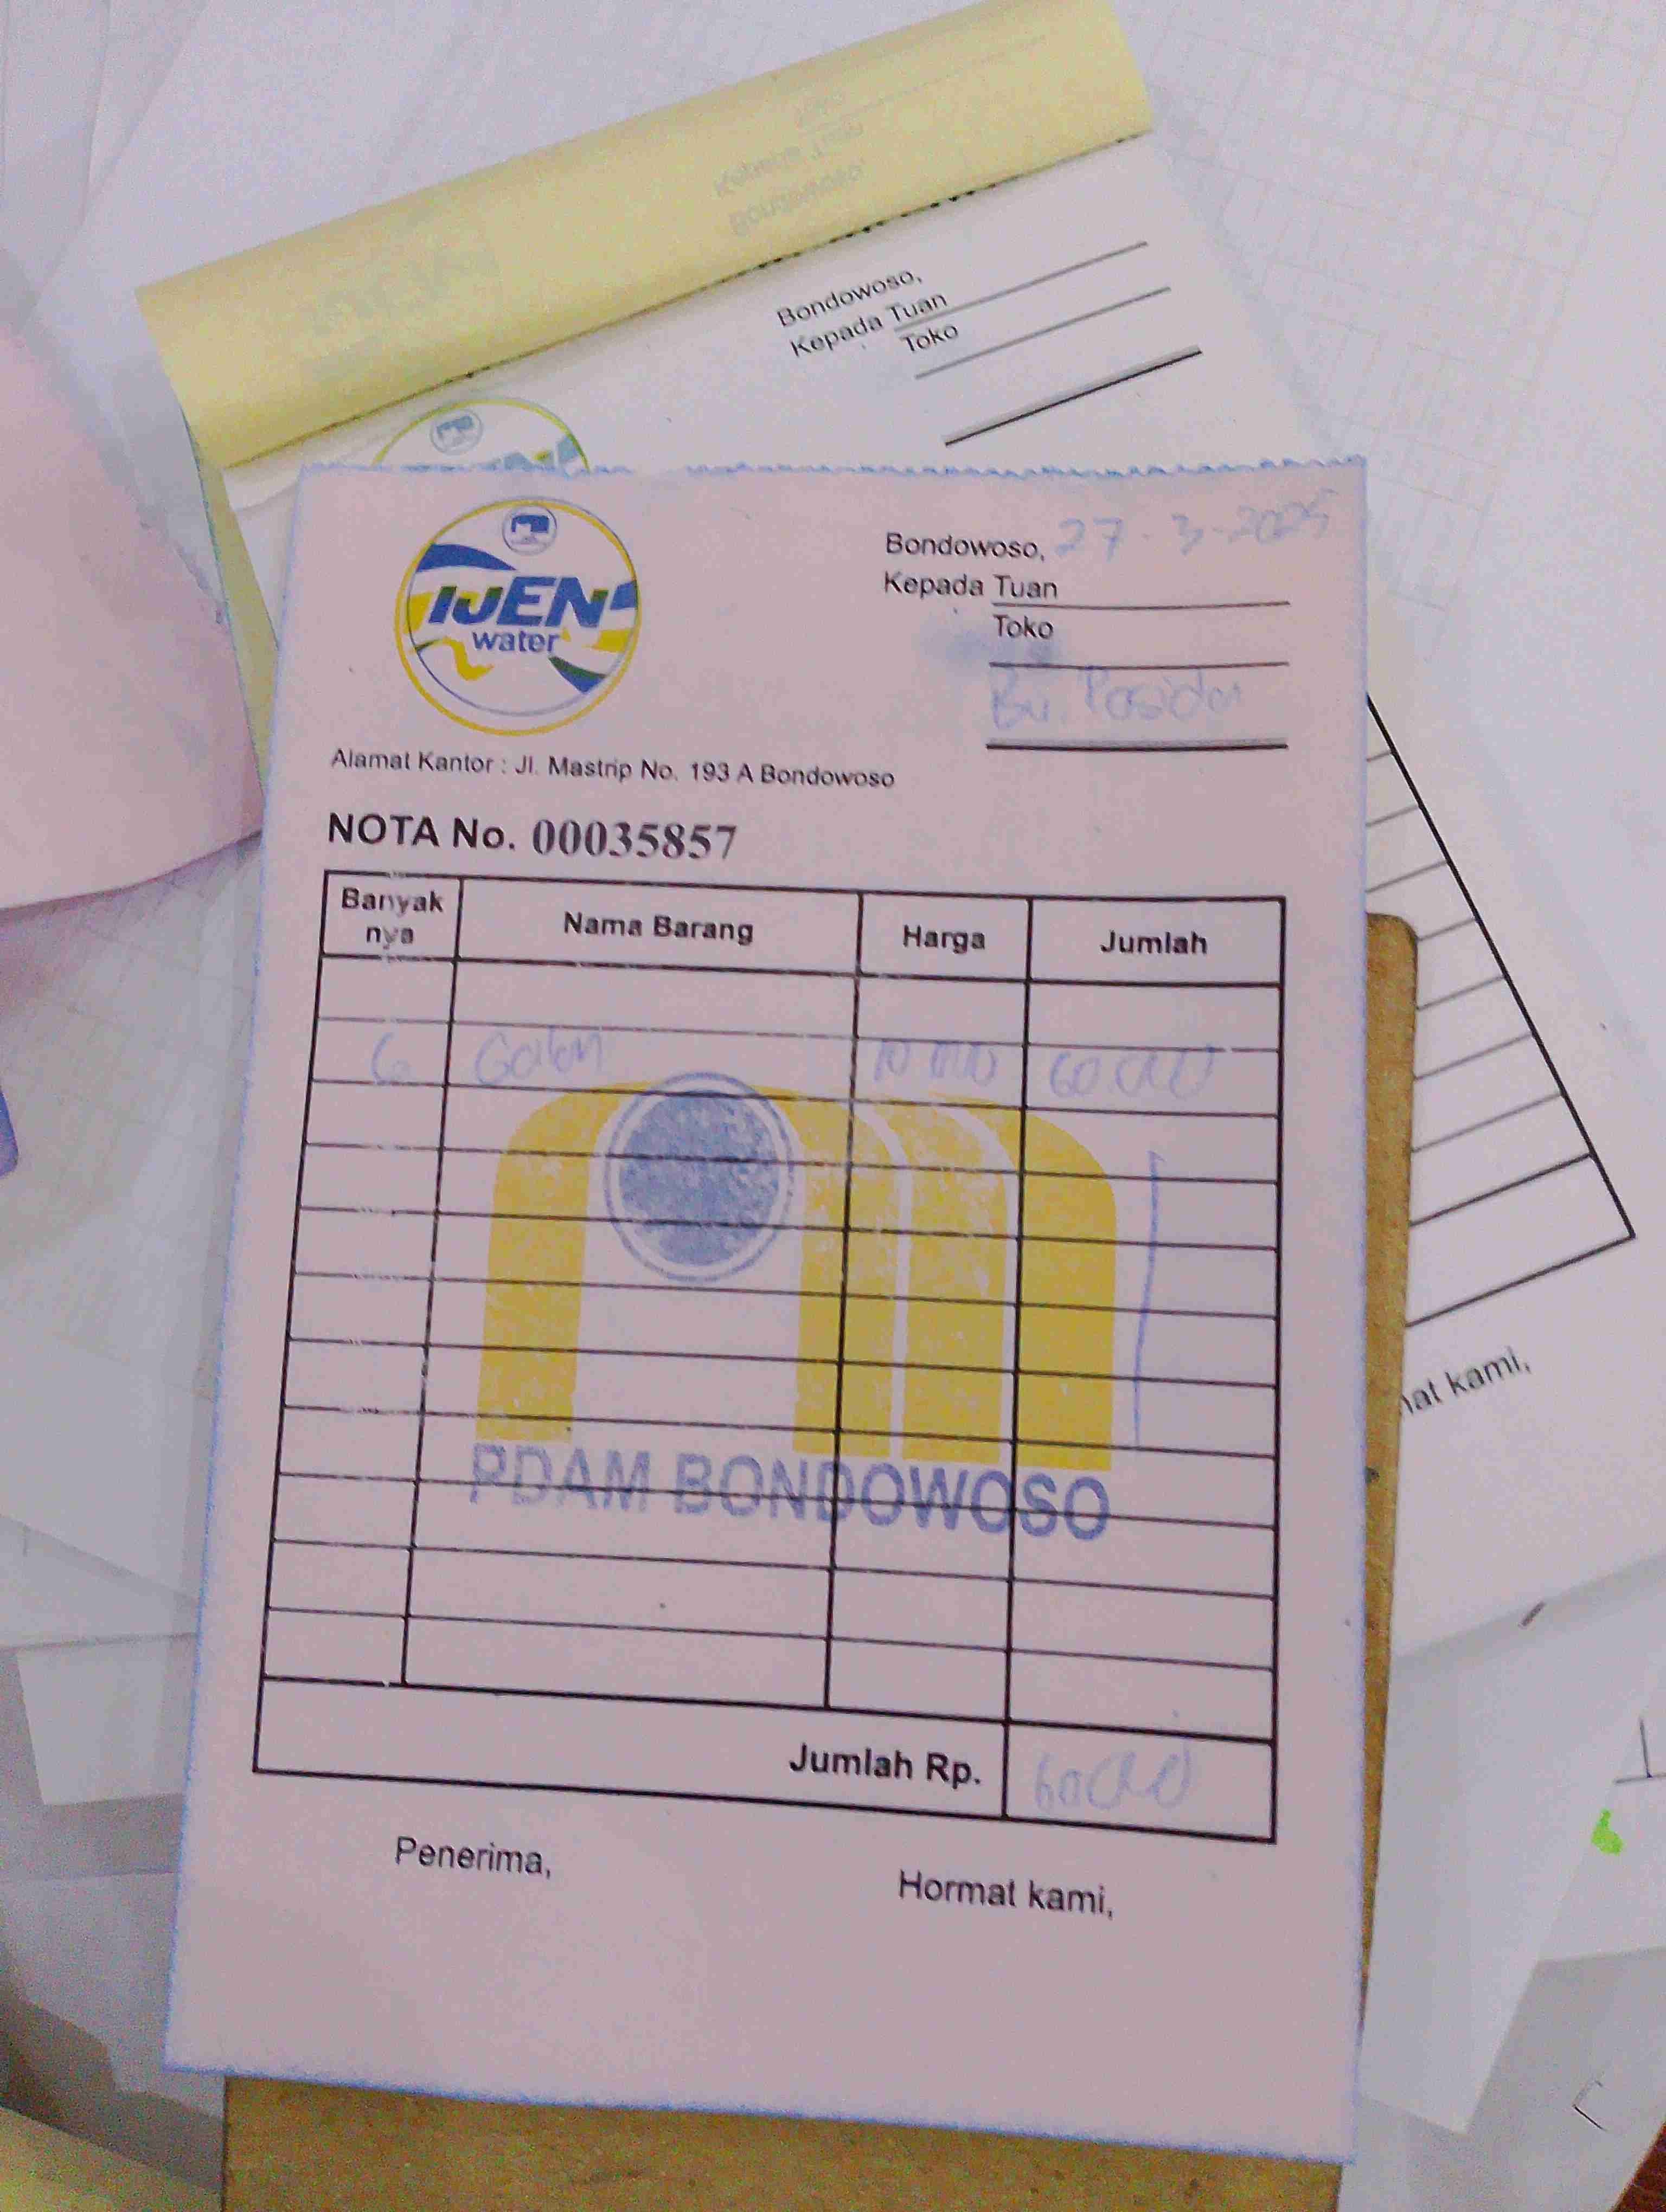 Bondowoso,
Kepada Tuan
Toko
IJEN
water
Bondowoso, 27-3-2025
Kepada Tuan
Toko
Bu.
Alamat Kantor : Jl. Mastrip No. 193 A Bondowoso
NOTA No. 00035857
Banyak nya Nama Barang Harga Jumlah
6 Galon 10 000 60.000
PDAM BONDOWOSO
Jumlah Rp. 60.000
Penerima, Hormat kami,
kami,